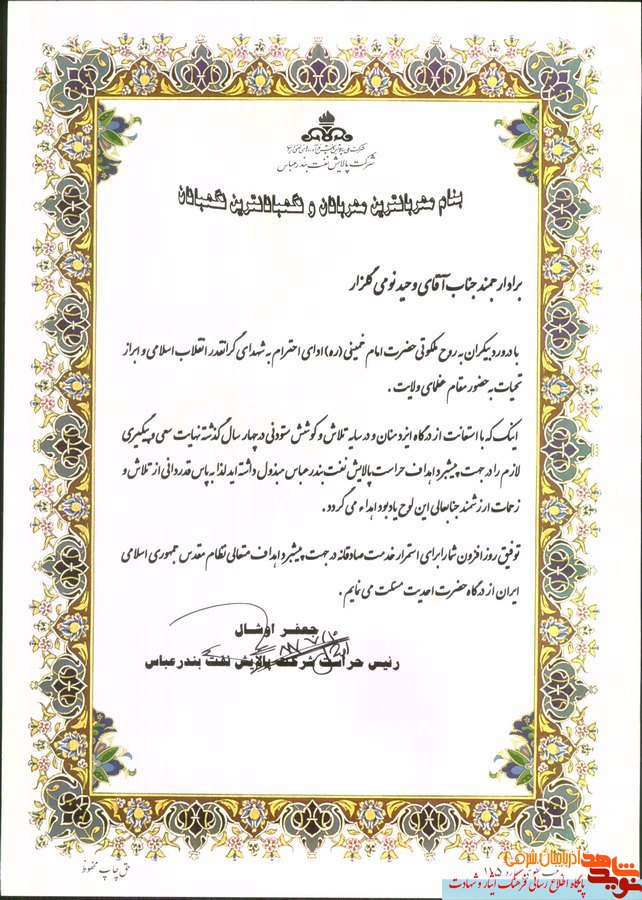 شرکت پالایش نفت بندرعباس
بنام مهربانترین مهربانان و نگهبانانترین نگهبانان
برادر ارجمند جناب آقای وحید نومی گلزار
با درود بیکران به روح ملکوتی حضرت امام خمینی (ره) ادای احترام به شهدای گرانقدر انقلاب اسلامی و ابراز
تحیات به حضور مقام عظمای ولایت .
اینک که با استعانت از درگاه ایزد منان و در سایه تلاش و کوشش ستودنی در چهار سال گذشته نهایت سعی و پیگیری
لازم را در جهت پیشبرد اهداف حراست پالایش نفت بندرعباس مبذول داشته اید لذا به پاس قدردانی از تلاش و
زحمات ارزشمند جنابعالی این لوح یادبود اهداء می گردد .
توفیق روز افزون شما را برای استمرار خدمت صادقانه در جهت پیشبرد اهداف متعالی نظام مقدس جمهوری اسلامی
ایران از درگاه حضرت احدیت مسئلت می نمایم .
جعفر اوشال
رئیس حراست شرکت پالایش نفت بندرعباس
حق چاپ محفوظ
۱۸۵
نوید شاهد آذربایجان شرقی
پایگاه اطلاع رسانی فرهنگ ایثار و شهادت